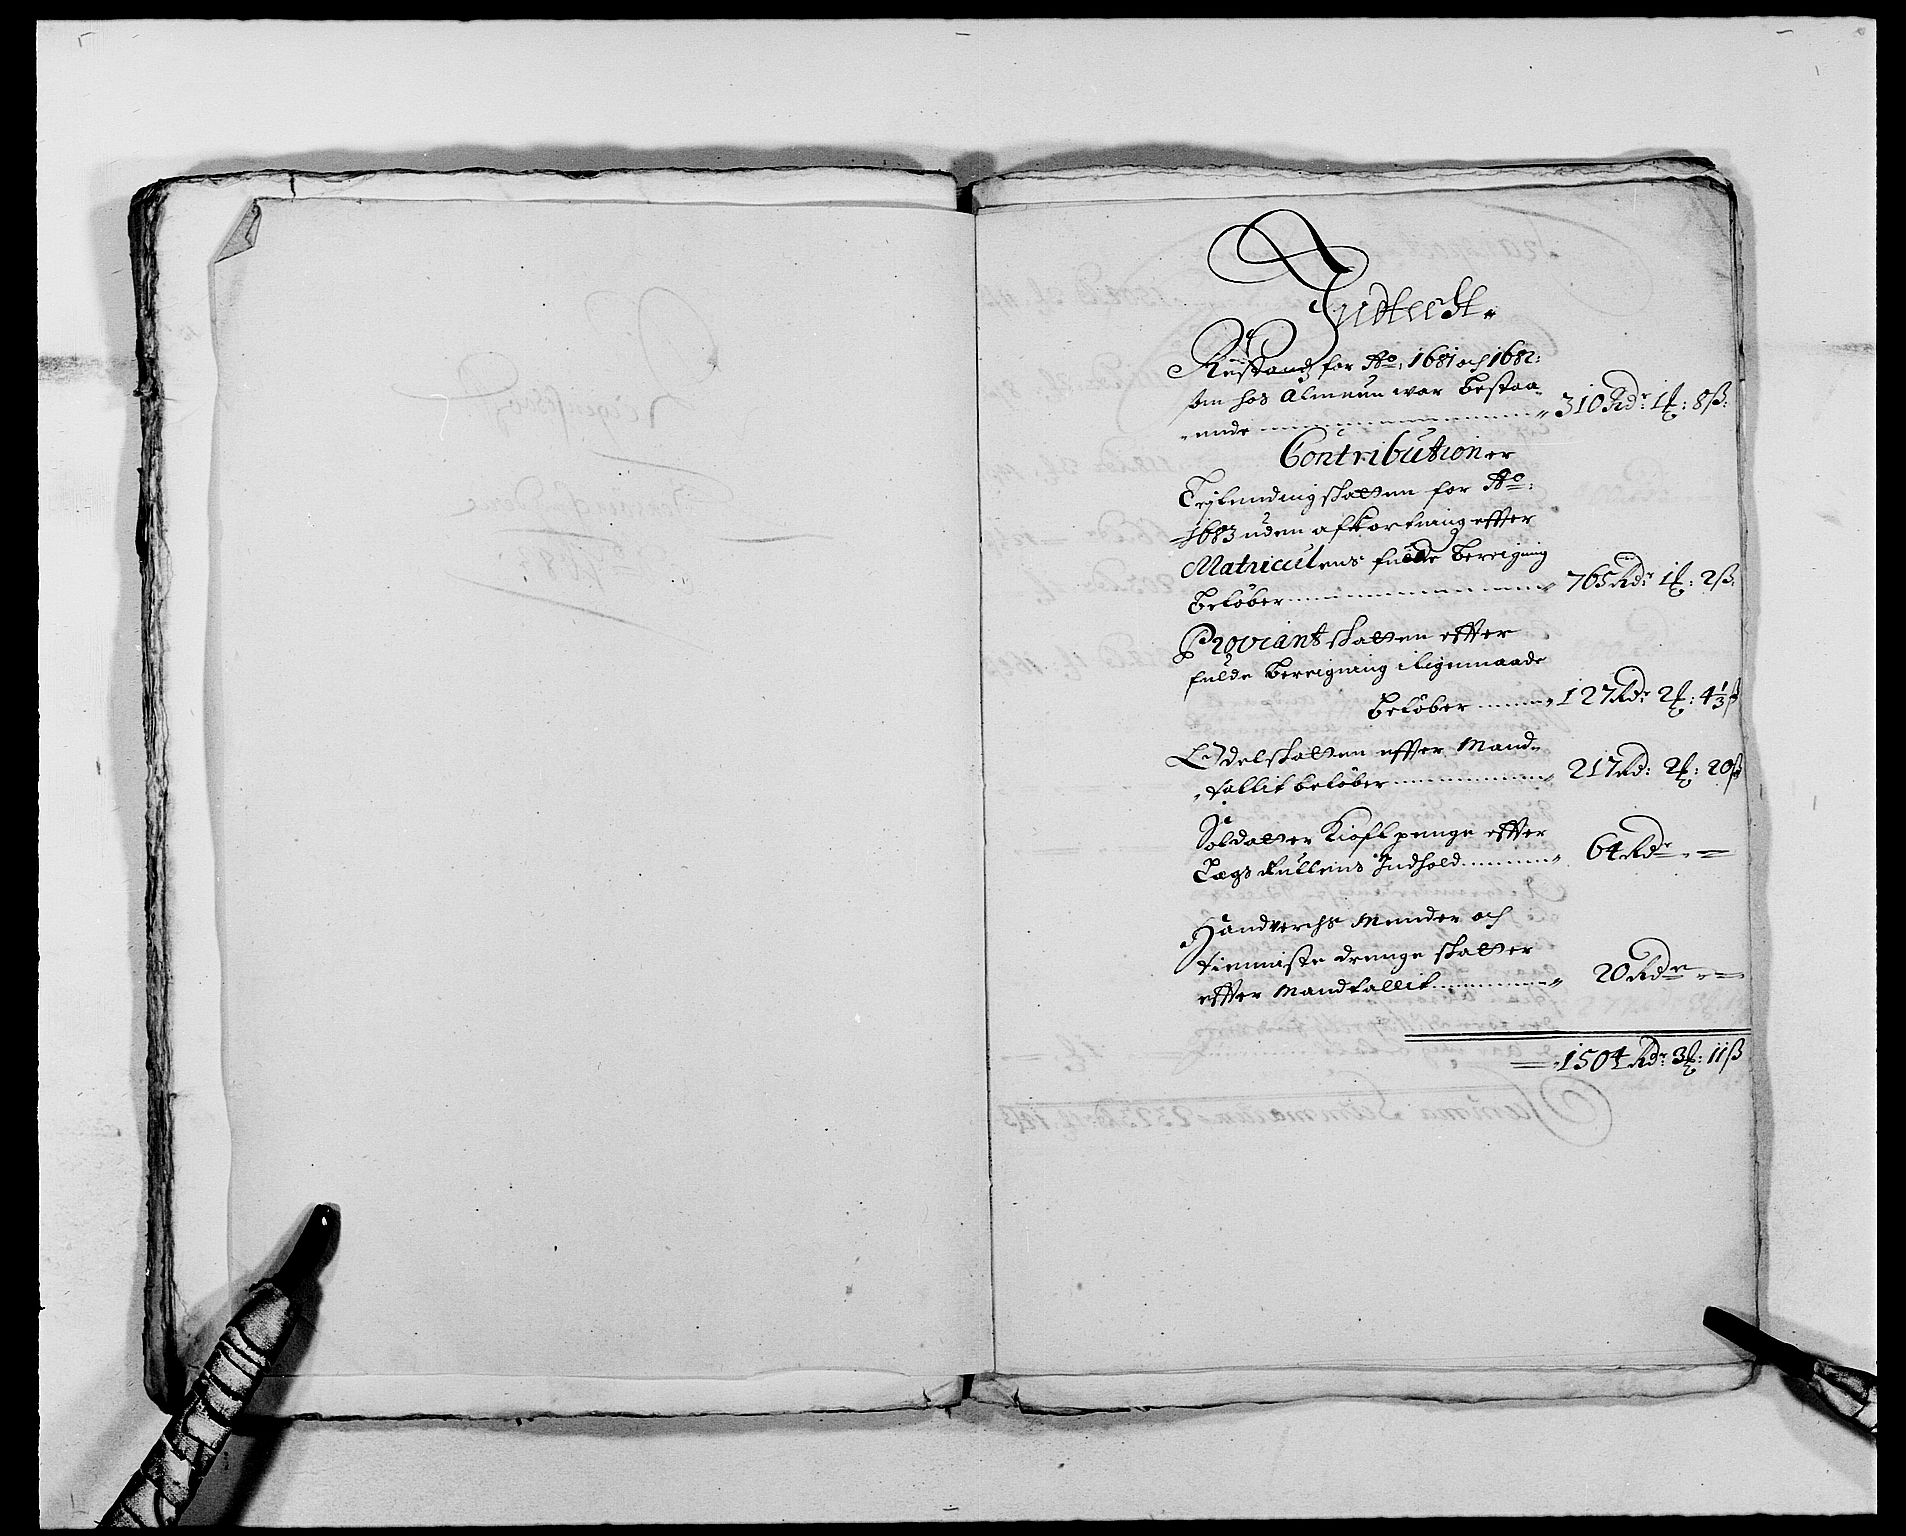 Indtecht
Restandz for Ao: 1681 och 1682:
som hos Almuen war bestaa-
ende 310 Rdr: 1 ℔: 8 ß:
Contributioner
Lejlendingskatten for Ao:
1683 uden afkortning effter
Matriculens fulde bereigning
beløber 765 Rdr 1 ℔: 2 ß:
Proviantskatten effter
fulde bereigning i ligemaade
beløber 127 Rdr 2 ℔: 4 1/3 ß
Odelskatten effter Mand-
tallit beløber 217 Rd: 2 ℔: 20 ß
Soldatter Kioflpenge effter
Legs Rullens Indhold 64 Rdr
Handverchs Mender och
tienniste drenge skatter
effter Mandtallit 20 Rdr
1504 Rdr 3 ℔: 11 ß